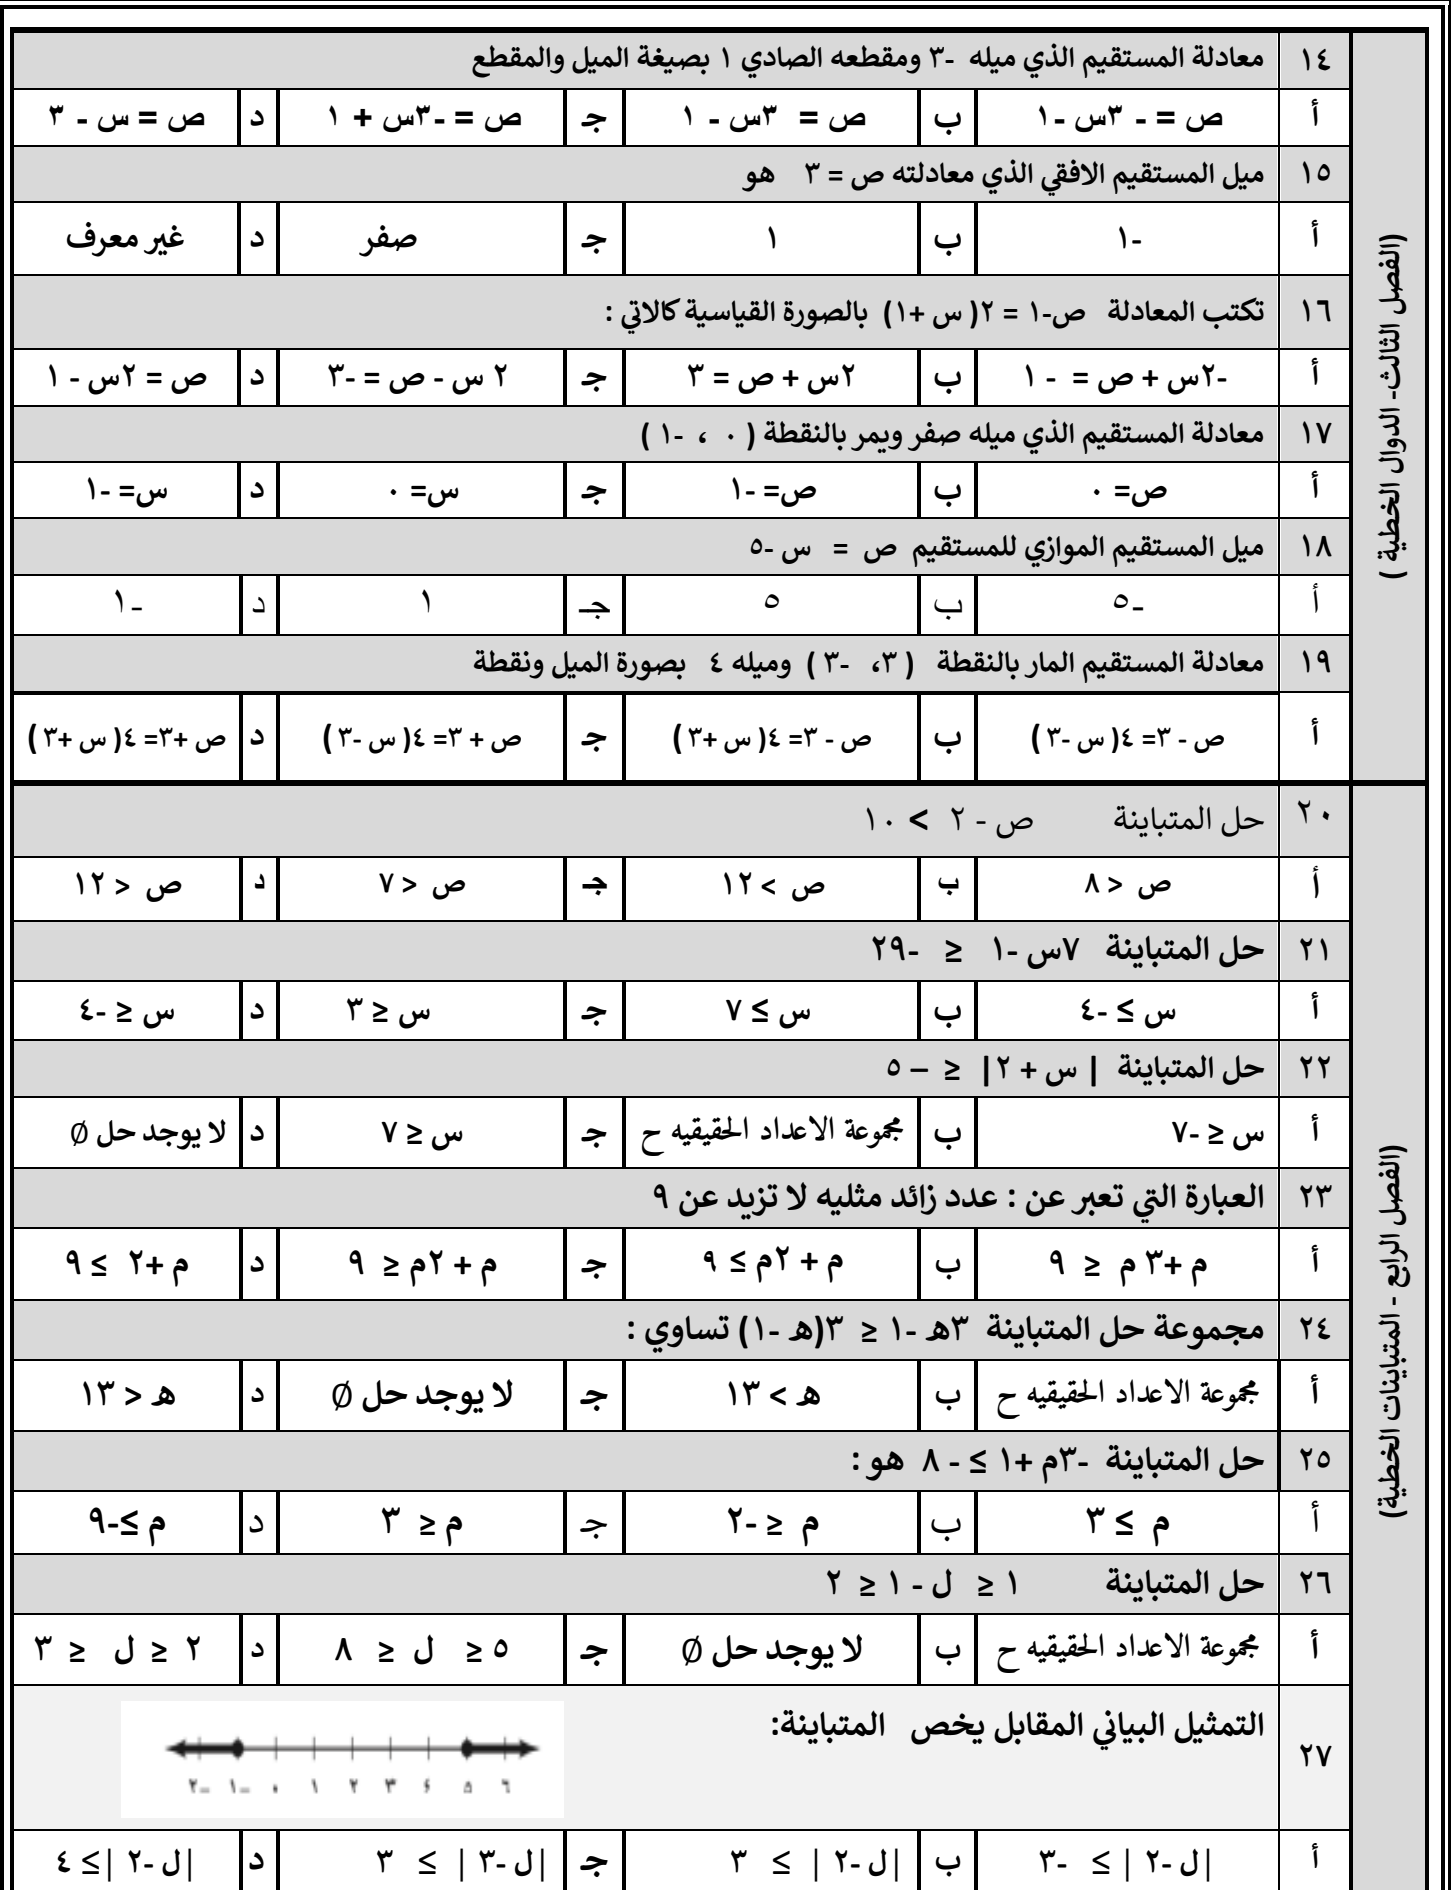 (الفصل الثالث- الدوال الخطية )
١٤ معادلة المستقيم الذي ميله -٣ ومقطعه الصادي ١ بصيغة الميل والمقطع
أ ص = - ٣س -١ ب ص = ٣س - ١ جـ ص = -٣س + ١ د ص = س - ٣
١٥ ميل المستقيم الافقي الذي معادلته ص = ٣ هو
أ -١ ب ١ جـ صفر د غير معرف
١٦ تكتب المعادلة ص-١ = ٢( س +١) بالصورة القياسية كالاتي :
أ -٢س + ص = - ١ ب ٢س + ص = ٣ جـ ٢ س - ص = -٣ د ص = ٢س - ١
١٧ معادلة المستقيم الذي ميله صفر ويمر بالنقطة ( ٠ ، -١ )
أ ص= ٠ ب ص= -١ جـ س= ٠ د س= -١
١٨ ميل المستقيم الموازي للمستقيم ص = س -٥
أ -٥ ب ٥ جـ ١ د -١
١٩ معادلة المستقيم المار بالنقطة ( ٣، -٣ ) وميله ٤ بصورة الميل ونقطة
أ ص - ٣= ٤( س -٣ ) ب ص - ٣= ٤( س +٣ ) جـ ص + ٣= ٤( س -٣ ) د ص +٣= ٤( س +٣ )
(الفصل الرابع - المتباينات الخطية)
٢٠ حل المتباينة ص - ٢ > ١٠
أ ص < ٨ ب ص > ١٢ جـ ص < ٧ د ص < ١٢
٢١ حل المتباينة ٧س -١ ≤ -٢٩
أ س ≥ -٤ ب س ≥ ٧ جـ س ≤ ٣ د س ≤ -٤
٢٢ حل المتباينة | س + ٢| ≤ – ٥
أ س ≤ -٧ ب مجموعة الاعداد الحقيقيه ح جـ س ≤ ٧ د لا يوجد حل ∅
٢٣ العبارة التي تعبر عن : عدد زائد مثليه لا تزيد عن ٩
أ م +٣ م ≤ ٩ ب م + ٢م ≥ ٩ جـ م + ٢م ≤ ٩ د م +٢ ≥ ٩
٢٤ مجموعة حل المتباينة ٣هـ -١ ≤ ٣(هـ -١) تساوي :
أ مجموعة الاعداد الحقيقيه ح ب هـ > ١٣ جـ لا يوجد حل ∅ د هـ < ١٣
٢٥ حل المتباينة -٣م +١ ≥ - ٨ هو :
أ م ≥ ٣ ب م ≤ -٢ جـ م ≤ ٣ د م ≥-٩
٢٦ حل المتباينة ١ ≤ ل - ١ ≤ ٢
أ مجموعة الاعداد الحقيقيه ح ب لا يوجد حل ∅ جـ ٥ ≤ ل ≤ ٨ د ٢ ≤ ل ≤ ٣
٢٧ التمثيل البياني المقابل يخص المتباينة:
–٢ –١ ٠ ١ ٢ ٣ ٤ ٥ ٦
أ |ل -٢ | ≥ -٣ ب |ل -٢ | ≥ ٣ جـ |ل -٣ | ≥ ٣ د |ل -٢ |≥ ٤